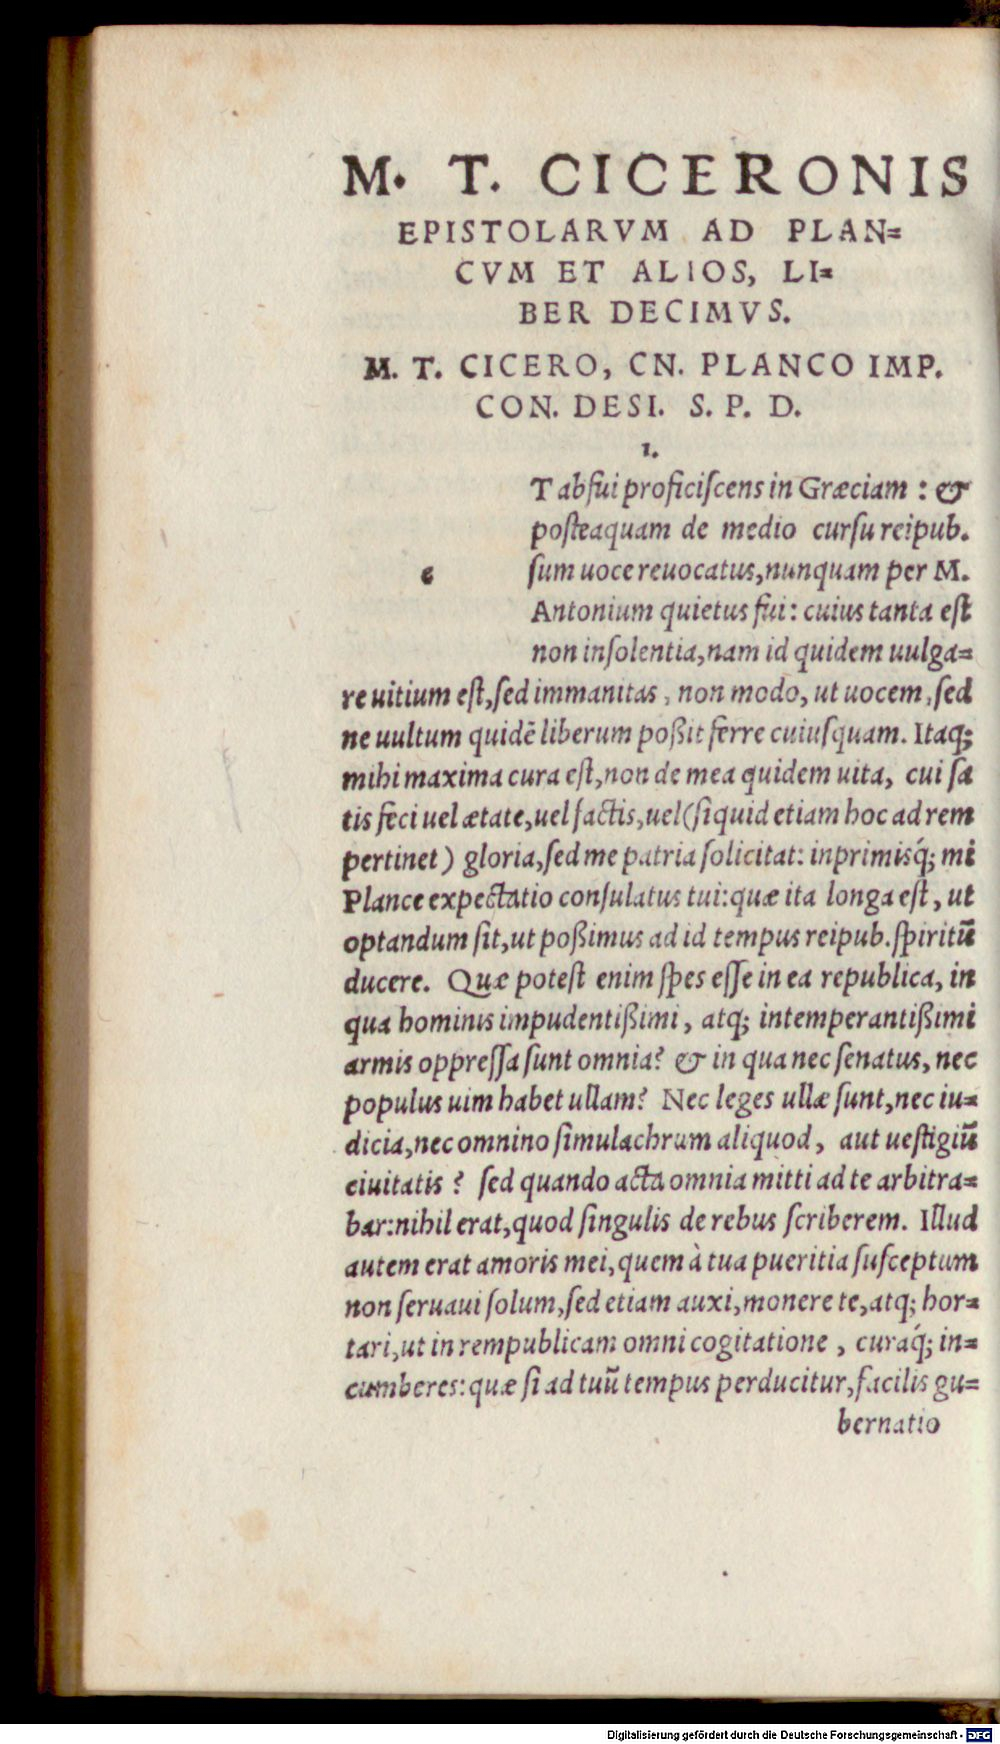 M. T. CICERONIS
EPISTOLARVM AD PLAN=
CVM ET ALIOS, LI=
BER DECIMVS.
M. T. CICERO, CN. PLANCO IMP.
CON. DESI. S. P. D.
1.
e
T abfui proficiſcens in Græciam : &
poſteaquam de medio curſu reipub.
ſum uoce reuocatus, nunquam per M.
Antonium quietus fui: cuius tanta eſt
non inſolentia, nam id quidem uulga=
re uitium eſt, ſed immanitas, non modo, ut uocem, ſed
ne uultum quidē liberum poßit ferre cuiuſquam. Itaq;
mihi maxima cura eſt, non de mea quidem uita, cui ſa
tis feci uel ætate, uel factis, uel (ſi quid etiam hoc ad rem
pertinet) gloria, ſed me patria ſolicitat: inprimisq́; mi
Plance expectatio conſulatus tui: quæ ita longa eſt, ut
optandum ſit, ut poßimus ad id tempus reipub. ſpiritū
ducere. Quæ poteſt enim ſpes eſſe in ea republica, in
qua hominis impudentißimi, atq; intemperantißimi
armis oppreſſa ſunt omnia? & in qua nec ſenatus, nec
populus uim habet ullam? Nec leges ullæ ſunt, nec iu=
dicia, nec omnino ſimulachrum aliquod, aut ueſtigiū
ciuitatis? ſed quando acta omnia mitti ad te arbitra=
bar: nihil erat, quod ſingulis de rebus ſcriberem. Illud
autem erat amoris mei, quem à tua pueritia ſuſceptum
non ſeruaui ſolum, ſed etiam auxi, monere te, atq; hor=
tari, ut in rempublicam omni cogitatione, curaq́; in=
cumberes: quæ ſi ad tuū tempus perducitur, facilis gu=
bernatio
Digitalisierung gefördert durch die Deutsche Forschungsgemeinschaft - DFG